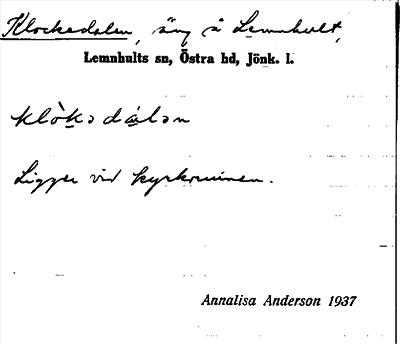 Klockedalen, äng å Lemnhult,
Lemnhults sn, Östra hd, Jönk. l.
klò̱kədá̱lən
Ligger vid kyrkoruinen.
Annalisa Anderson 1937